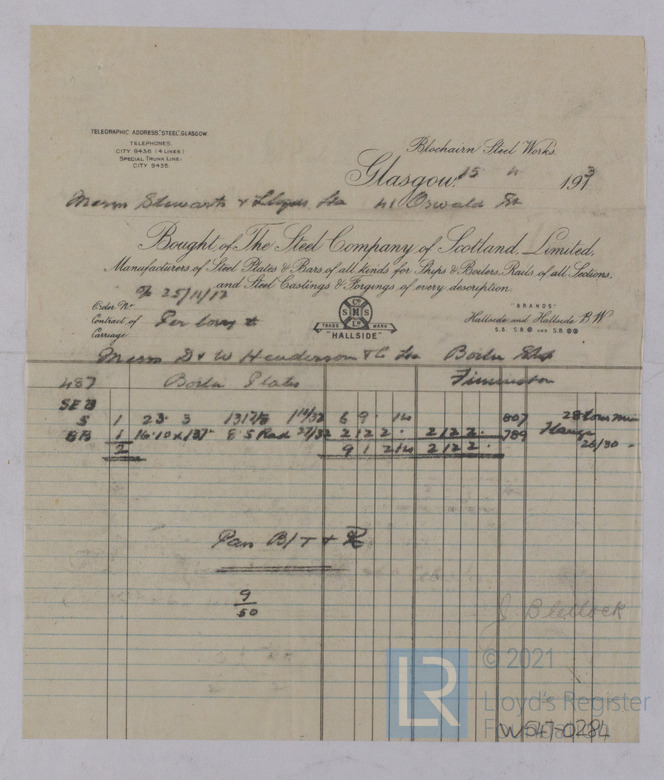 TELEGRAPHIC ADDRESS, "STEEL", GLASGOW
TELEPHONES.
CITY 9436 (4 LINES)
SPECIAL TRUNK LINE:
CITY 9435.
Blochairn Steel Works.
Glasgow, 15 4 1913
Messrs Stewarts & Lloyds Ltd 41 Oswald St
Bought of The Steel Company of Scotland, Limited,
Manufacturers of Steel Plates & Bars of all kinds for Ships & Boilers, Rails of all Sections,
and Steel Castings & Forgings of every description.
25/11/12
Order No.
Contract of Per Lorry
Carriage
Co S H S Ld
TRADE MARK
"HALLSIDE"
"BRANDS"
Hallside and Hallside B.W
S.B. S.B AND S.B
Messrs D & W Henderson & Co Ltd Boiler Shop
487 Boiler Plates Finnieston
SE B
S 1 23. 3 1 14/32 6 9 . 14 807
BB 1 16.10 x 137 8.5 Rad 27/32 2 12 2 . 2 12 2 . 789 Flange 26/30
2 9 1 2 14 2 12 2 .
Pan B/T &
9
50
J Blellock
LR
© 2021
Lloyd's Register
Foundation
W547-0284